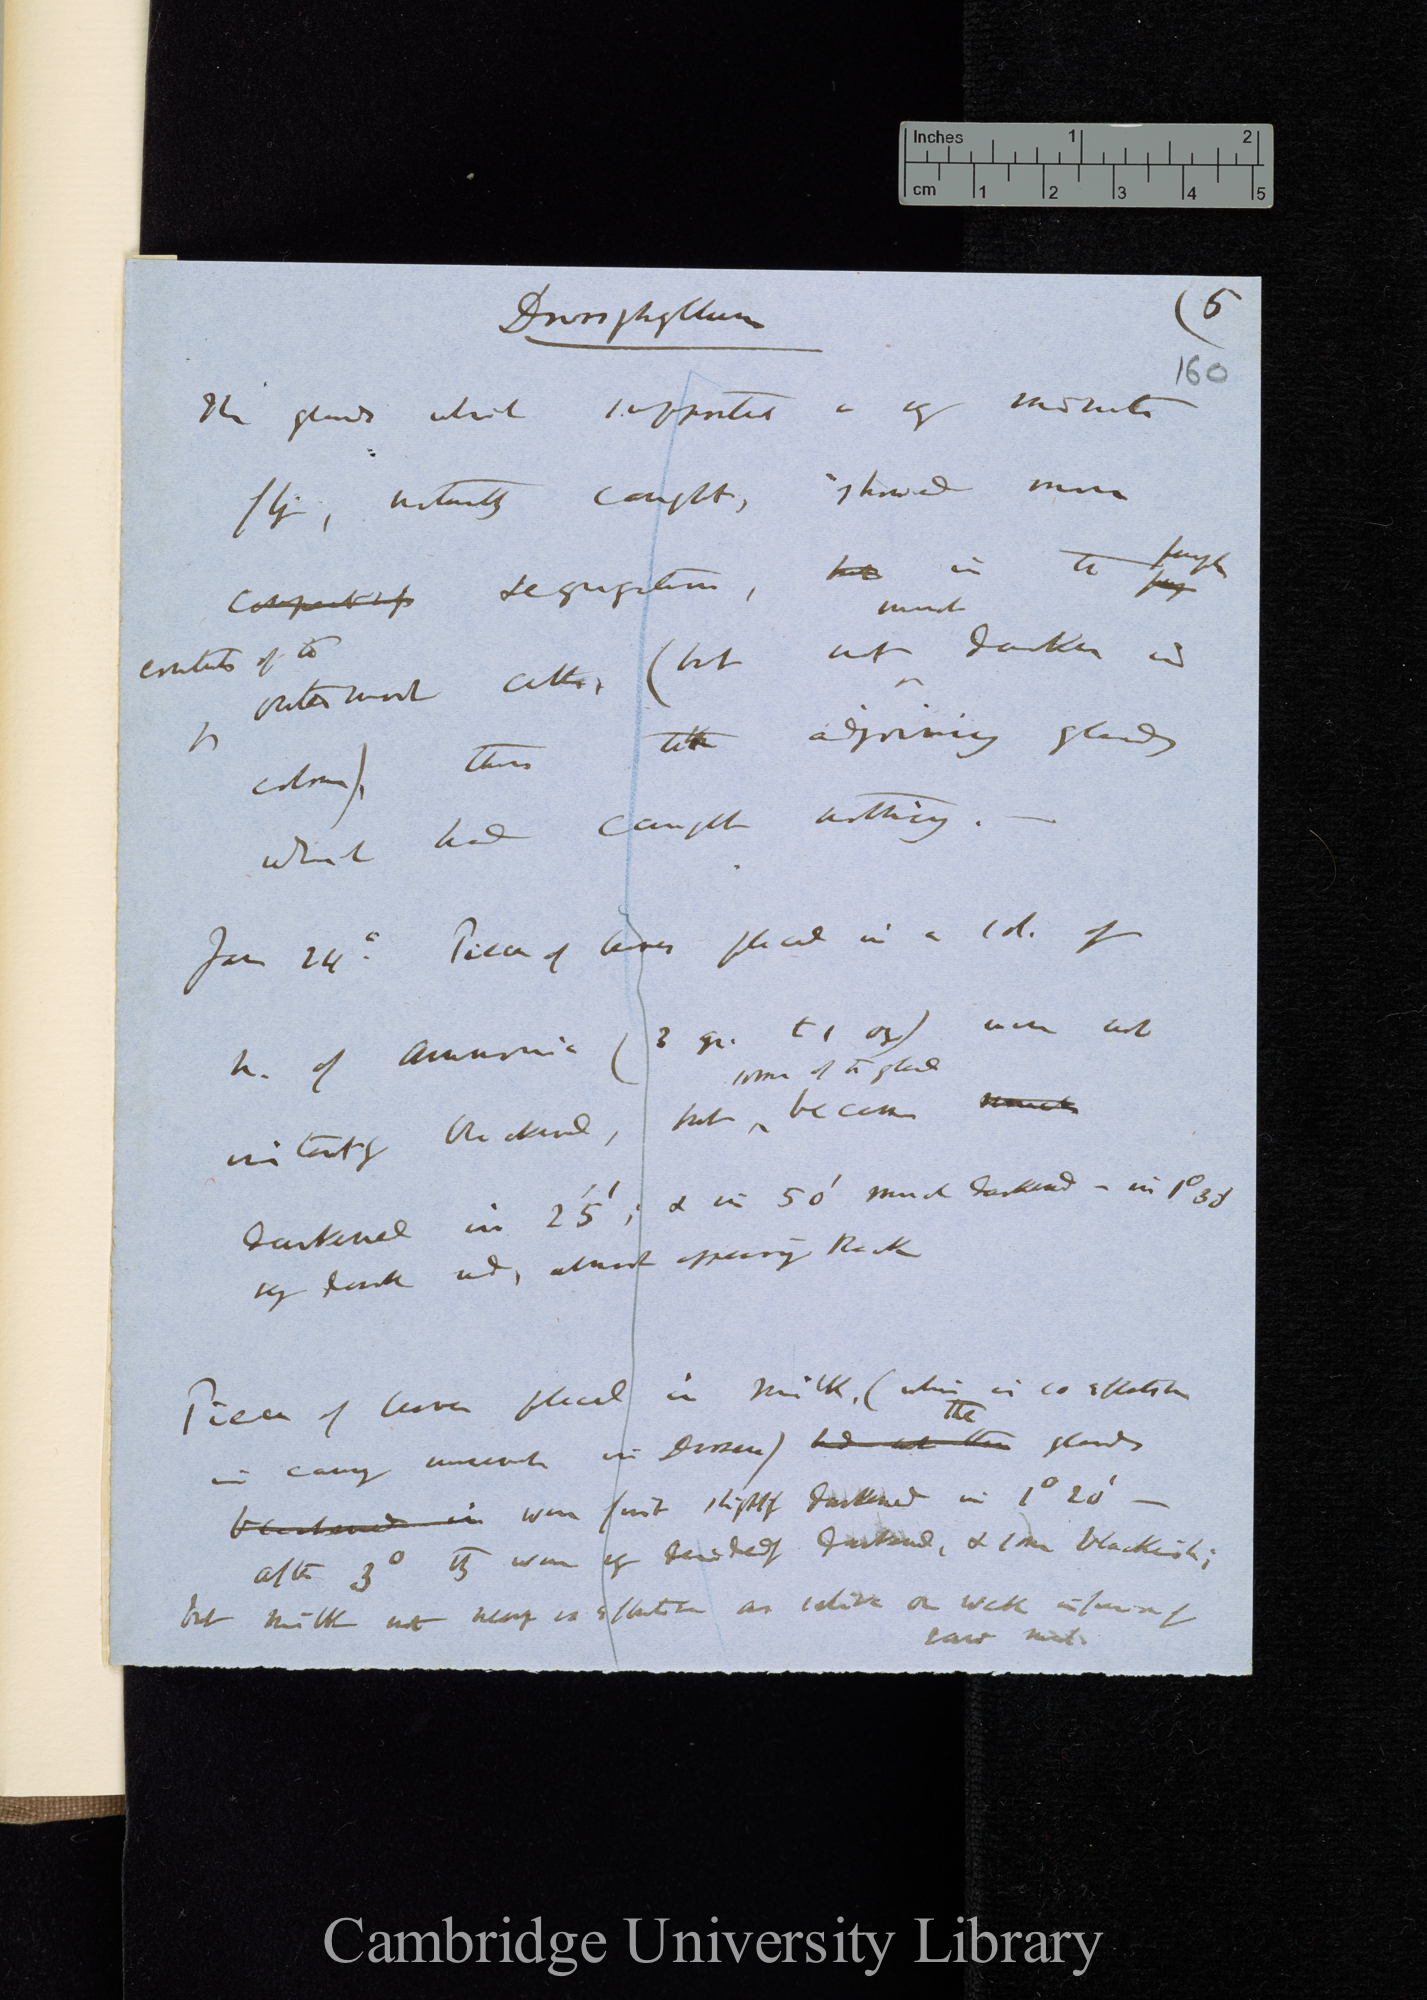 Inches 1 2
cm 1 2 3 4 5
Drosophyllum
(5
160
The glands which supported a vy minute
fly, naturally caught, showed more
segregation, but in the purple
contents of the
outermost cells, (but not much darker in
colour), than the adjoining glands
which had caught nothing. —
Jan 24° Pieces of leaves placed in a sol. of
N. of Ammonia (3 gr. to 1 oz) were not
instantly blackened, but some of the glands became much
darkened in 25'; & in 50' much darkened – in 1° 30'
vy dark red, almost appearing black
Pieces of leaves placed in milk, (which is so effective
in causing movement in Drosera) had not the the glands
blackened in were first slightly darkened in 1° 20' —
after 3° they were vy decidedly darkened, & some blackish;
but milk not nearly so effective as saliva or weak infusion of
raw meat.
Cambridge University Library